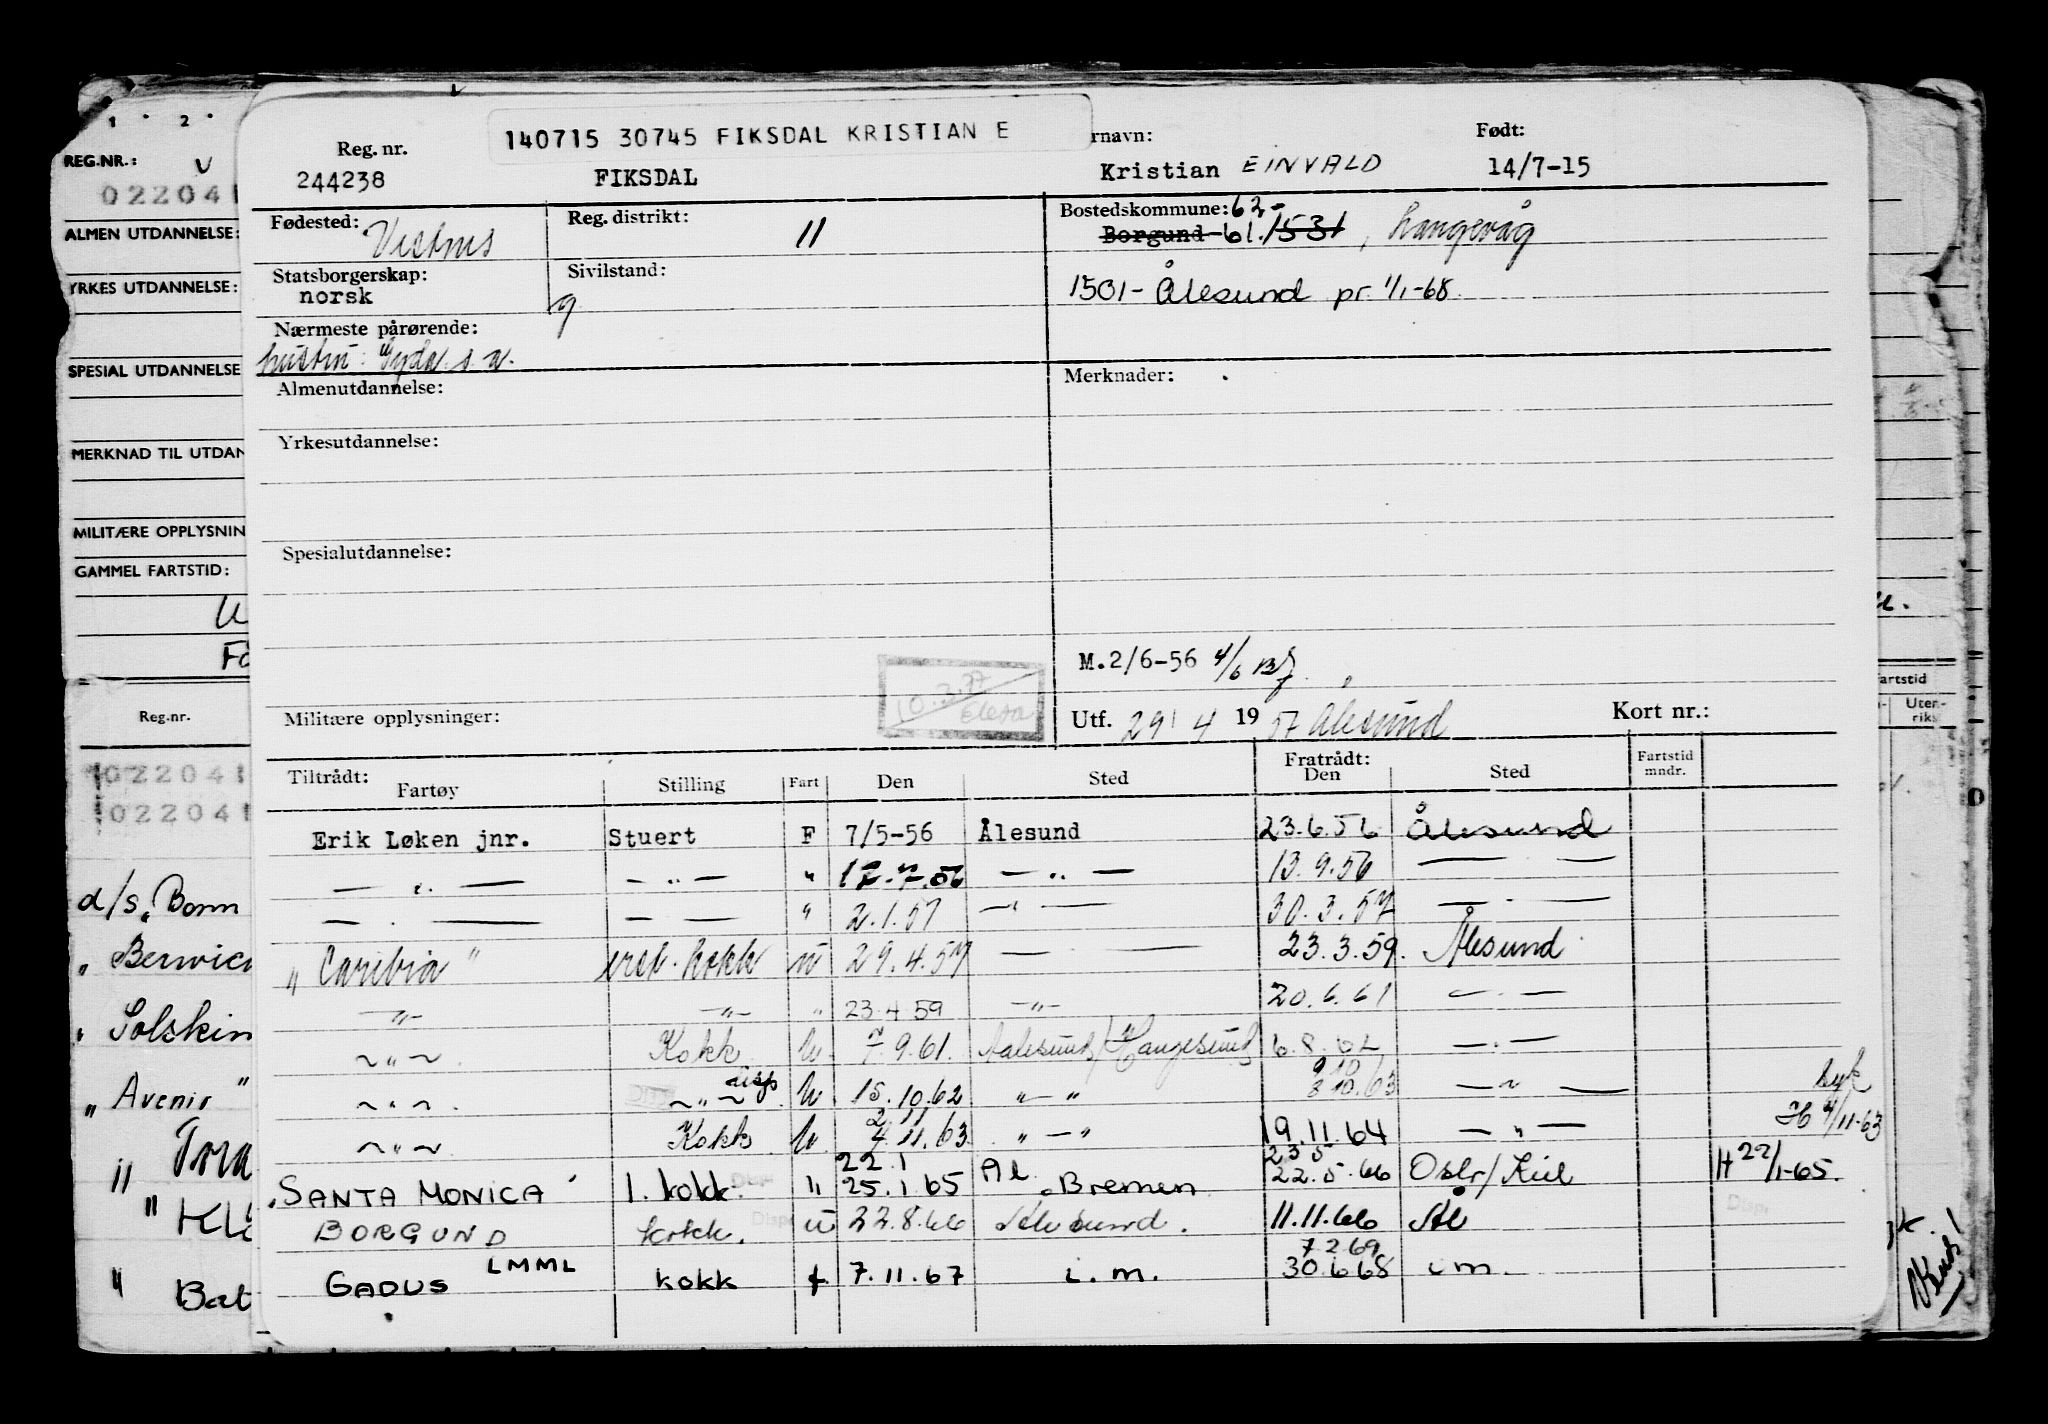 140715 30745 FIKSDAL KRISTIAN E
Reg. nr. rnavn: Født:
244238 FIKSDAL Kristian EINVALD 14/7-15
Fødested: Reg. distrikt: 11 Bostedskommune: 62-
Borgund-61. 1531, Langevåg
Statsborgerskap: norsk Sivilstand: g
1501- Ålesund pr. 1/1-68
Nærmeste pårørende:
hustru: s.a.
Almenutdannelse: Merknader:
Yrkesutdannelse:
Spesialutdannelse:
M.2/6-56 4/6
10.3.77
Militære opplysninger: Utf. 29/4 1957 Ålesund Kort nr.:
Tiltrådt: Fartøy Stilling Fart Den Sted Fratrådt: Den Sted Fartstid mndr.
Erik Løken jnr. Stuert F 7/5-56 Ålesund 23.6.56 Ålesund
— „ — — „ — " 17.7.56 — „ — 13.9.56 — „ —
— „ — — — " 2.1.57 — " — 30.3.57 — „ —
„ Caribia " kokk u 29.4.57 — 23.3.59. Ålesund
—„— —„— " 23.4.59 —„— 20.6.61 — „ —
~„~ Kokk u. 7.9.61. Aalesund/Haugesund 6.8.62 — „ —
~„~ ~„~ disp u. 15.10.62 „—„ 9 10 8 10.63 — ~ —
~„~ Kokk u. 2 11 4.11.63 „—„ 19.11.64 — „ — H 4/11-63
„SANTA MONICA" 1. kokk " 22.1 25.1.65 Ål. Bremen 23 5 22.5.66 Oslo/Kiel H 22/1-65.
BORGUND kokk. u 22.8.66 Ålesund. 11.11.66 Ål
GADUS LMML kokk f 7.11.67 i.m. 7.2.69 30.6.68 i m.
1 2
REG.NR.: v
022041
ALMEN UTDANNELSE:
YRKES UTDANNELSE:
SPESIAL UTDANNELSE
MERKNAD TIL UTDAN
MILITÆRE OPPLYSNIN
GAMMEL FARTSTID:
Reg.nr.
022041
022041
d/s „Bom
„ Berwic
„ Solskin
„ Avenir"
"
"
" Bat
artstid
Uten-
riks